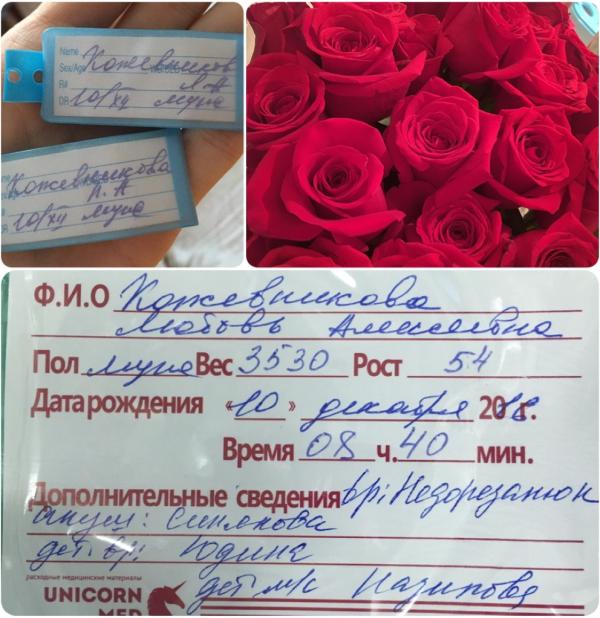 Name Кожевникова
Sex/Age Л.А
R#
DR 10/XII муж
Кожевникова
Л.А
10/XII муж
Ф.И.О Кожевникова
Любовь Алексеевна
Пол муж Вес 3530 Рост 54
Дата рождения «10» декабря 2018г.
Время 08 ч. 40 мин.
Дополнительные сведения вр:
акуш: Синякова
дет. вр: Юдина
дет м/с Назипова
расходные медицинские материалы
UNICORN
MED